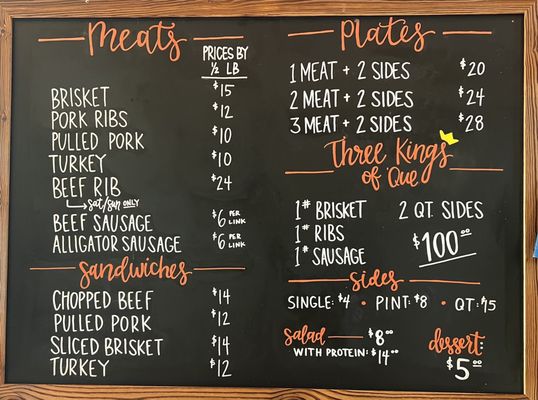 Meats
PRICES BY
½ LB
BRISKET $15
PORK RIBS $12
PULLED PORK $10
TURKEY $10
BEEF RIB $24
sat/sun ONLY
BEEF SAUSAGE $6 PER LINK
ALLIGATOR SAUSAGE $6 PER LINK
Sandwiches
CHOPPED BEEF $14
PULLED PORK $12
SLICED BRISKET $14
TURKEY $12
Plates
1 MEAT + 2 SIDES $20
2 MEAT + 2 SIDES $24
3 MEAT + 2 SIDES $28
Three Kings
of 'Que
1# BRISKET 2 QT. SIDES
1# RIBS
1# SAUSAGE
$100.00
sides
SINGLE: $4 • PINT: $8 • QT: $15
salad $8.00
WITH PROTEIN: $14.00
dessert:
$5.00